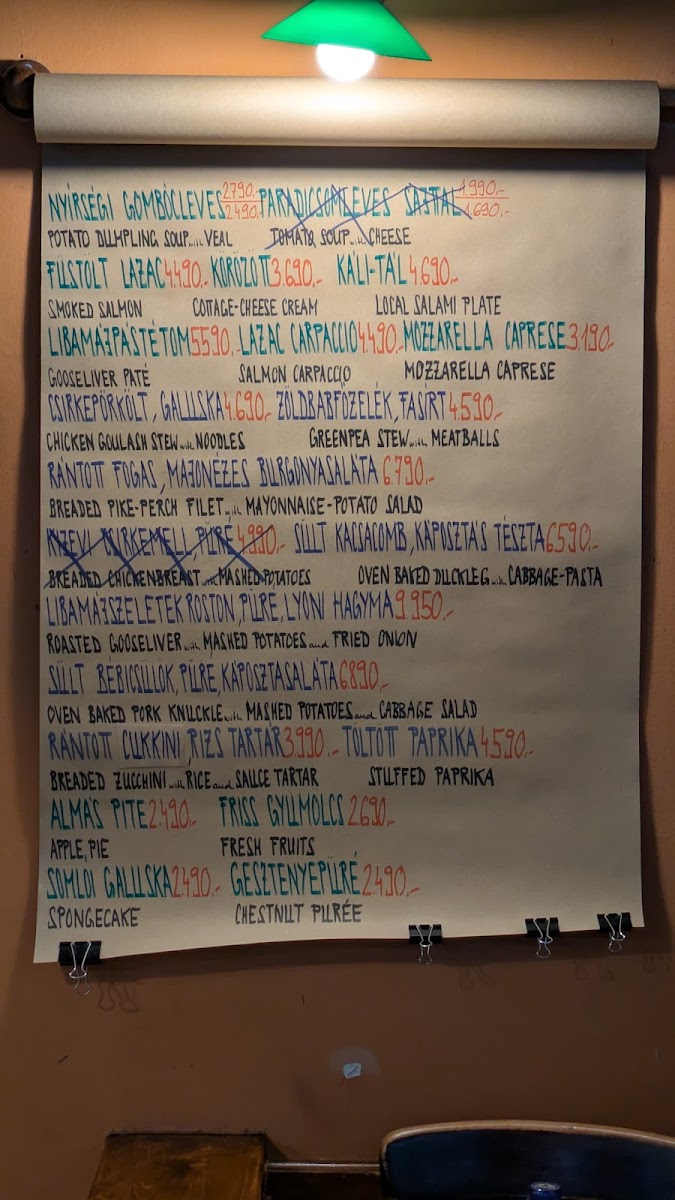 NYÍRSÉGI GOMBÓCLEVES 2790.- 2490.- PARADICSOMLEVES SAJTTAL 1.990.- 1.690.-
POTATO DUMPLING SOUP with VEAL TOMATO SOUP with CHEESE
FÜSTÖLT LAZAC 4.490.- KÖRÖZÖTT 3.690.- KÁLI-TÁL 4.690.-
SMOKED SALMON COTTAGE-CHEESE CREAM LOCAL SALAMI PLATE
LIBAMÁJPÁSTÉTOM 5590.- LAZAC CARPACCIO 4.490.- MOZZARELLA CAPRESE 3.190.-
GOOSELIVER PATÉ SALMON CARPACCIO MOZZARELLA CAPRESE
CSIRKEPÖRKÖLT, GALUSKA 4.690.- ZÖLDBABFŐZELÉK, FASÍRT 4.590.-
CHICKEN GOULASH STEW with NOODLES GREENPEA STEW with MEATBALLS
RÁNTOTT FOGAS, MAJONÉZES BURGONYASALÁTA 6.790.-
BREADED PIKE-PERCH FILET with MAYONNAISE-POTATO SALAD
KIJEVI CSIRKEMELL, PÜRÉ 4.990.- SÜLT KACSACOMB, KÁPOSZTÁS TÉSZTA 6590.-
BREADED CHICKENBREAST with MASHED POTATOES OVEN BAKED DUCKLEG with CABBAGE-PASTA
LIBAMÁJSZELETEK ROSTON, PÜRÉ, LYONI HAGYMA 9.950.-
ROASTED GOOSELIVER with MASHED POTATOES and FRIED ONION
SÜLT BÉBICSÜLÖK, PÜRÉ, KÁPOSZTASALÁTA 6.890.-
OVEN BAKED PORK KNUCKLE with MASHED POTATOES and CABBAGE SALAD
RÁNTOTT CUKKINI, RIZS TARTÁR 3.990.- TÖLTÖTT PAPRIKA 4.590.-
BREADED ZUCCHINI with RICE and SAUCE TARTAR STUFFED PAPRIKA
ALMÁS PITE 2.490.- FRISS GYÜMÖLCS 2.690.-
APPLE PIE FRESH FRUITS
SOMLÓI GALUSKA 2.490.- GESZTENYEPÜRÉ 2.490.-
SPONGECAKE CHESTNUT PURÉE